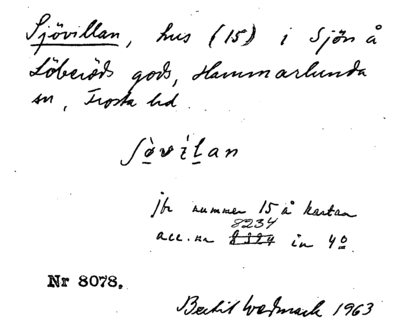 Sjövillan, hus (15) i Sjön å
Löberöds gods, Hammarlunda
sn, Frosta hd.
ʃò̱vìḻan
jfr nummer 15 å kartan
8234
acc. nr in 4o
Nr 8078.
Bertil Wedmark 1963